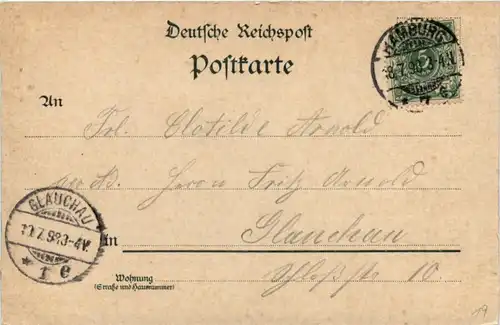 Deutsche Reichspost
Postkarte
HAMBURG
8.7.98. 3-4N.
5
An
Frl. Clotilde Arnold
Herrn Fritz Arnold
GLAUCHAU
3-4N.
* 1 e
in Glauchau
Schloßstr 10
Wohnung
(Straße und Hausnummer)
19